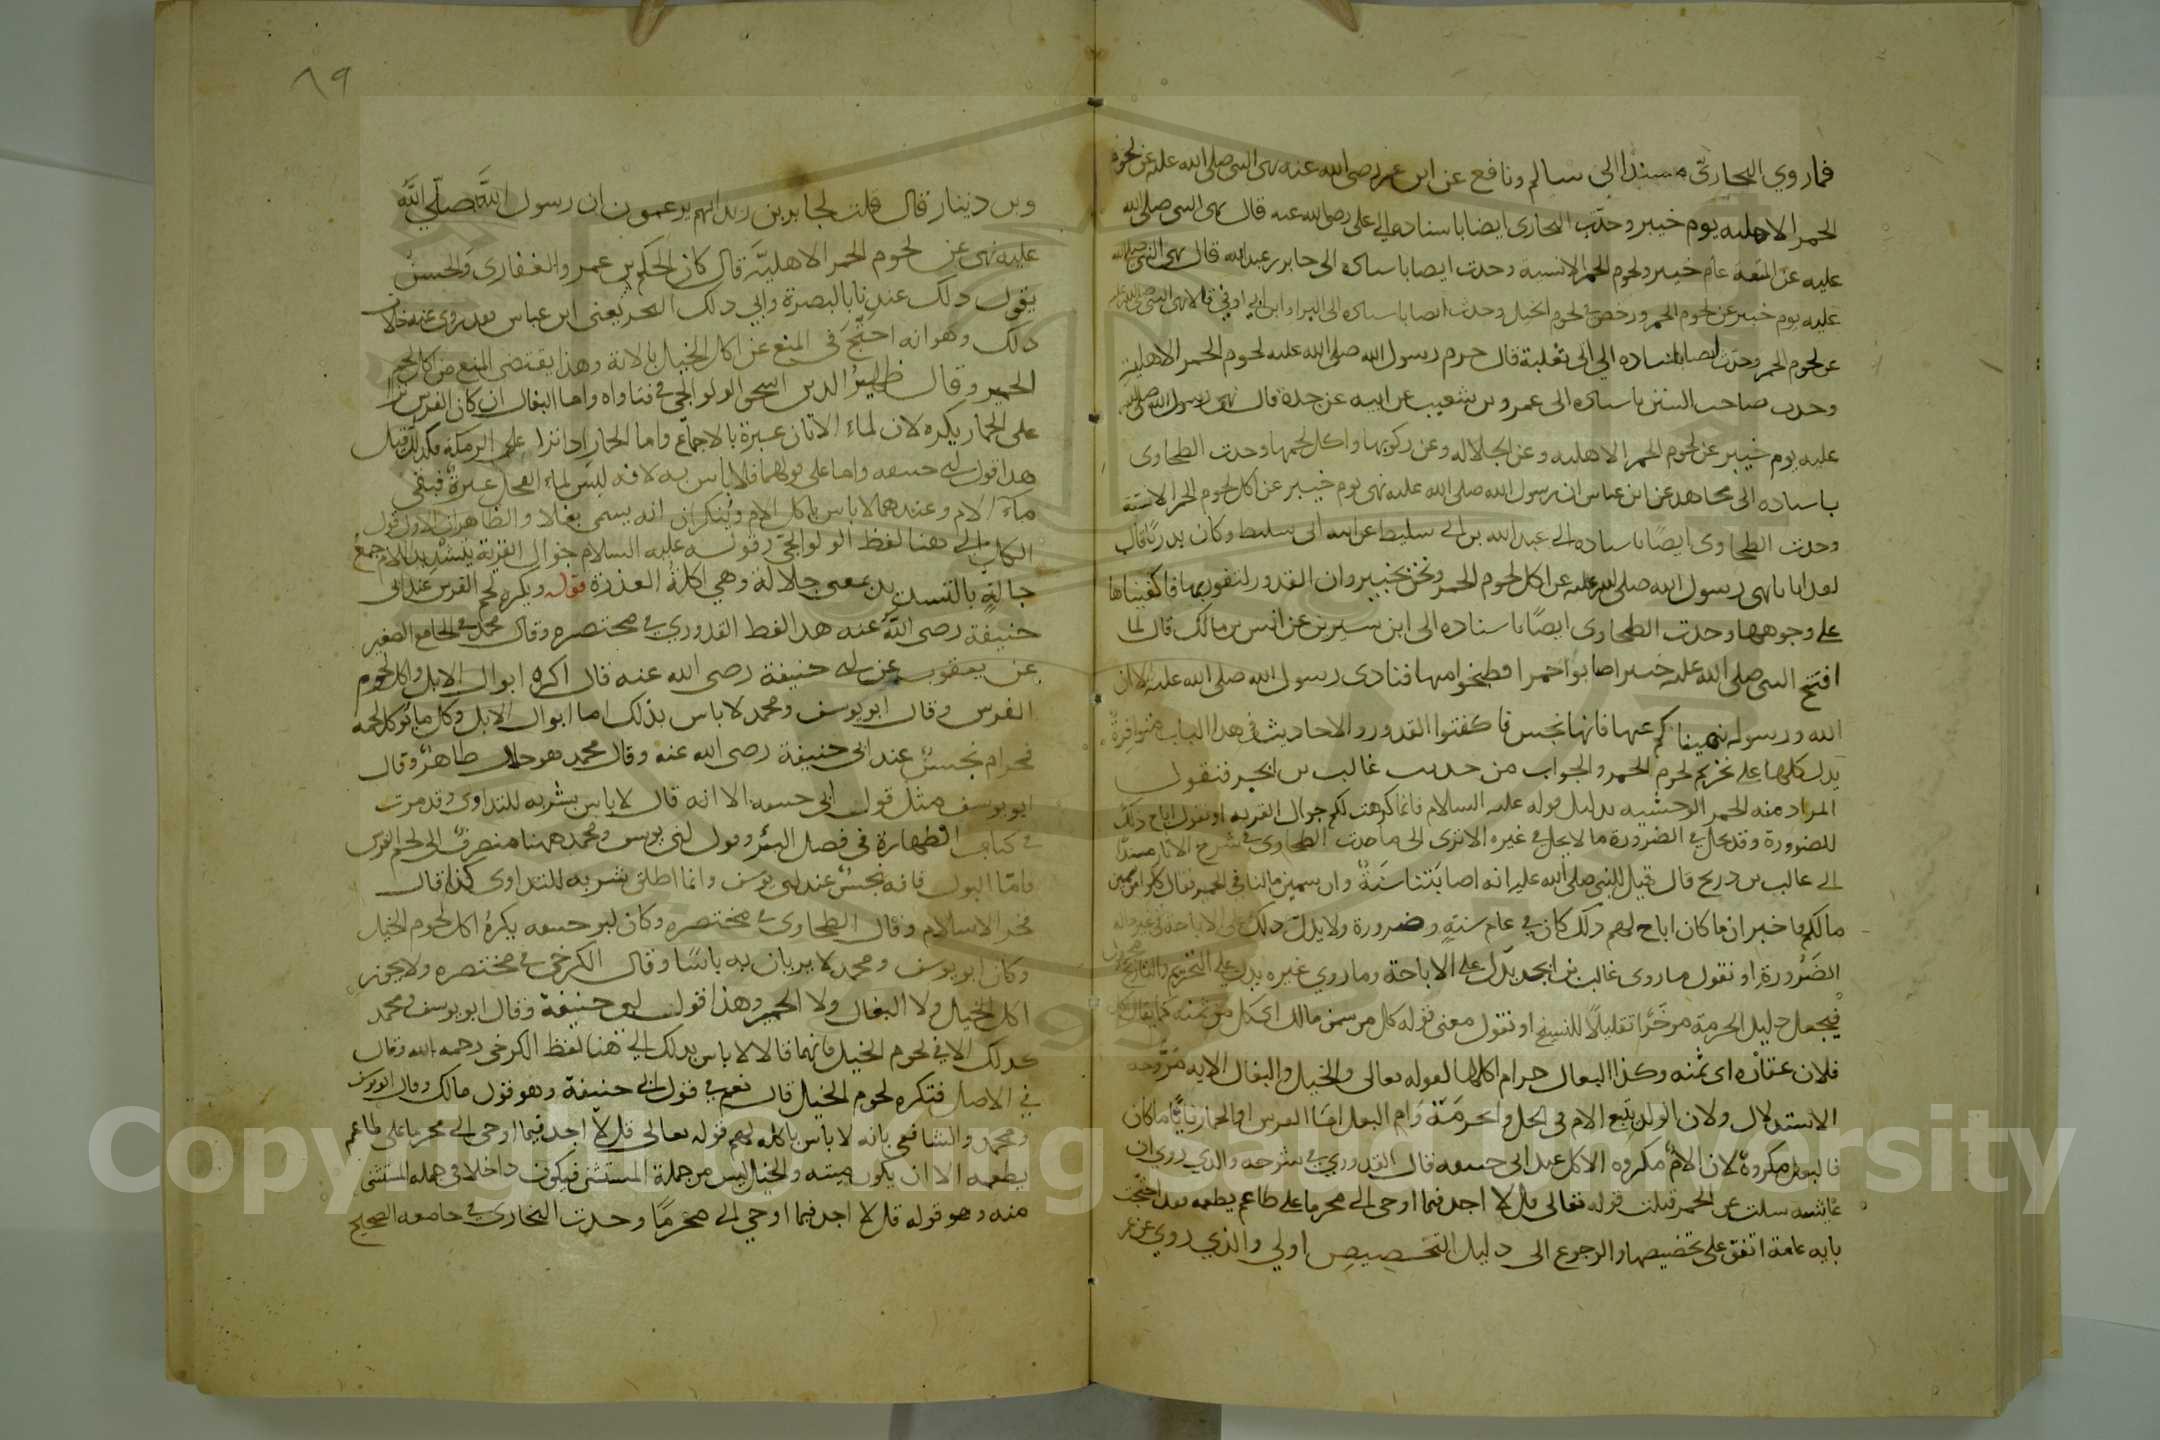 فما روي البخاري مسندا الى سالم ونافع عن ابن عمر رضى الله عنه نهى النبى صلى الله عليه عن لحوم
الحمر الاهلية يوم خيبر وحدث البخارى ايضا باسناده الى على رضى الله عنه قال نهى النبى صلى الله
عليه عن المتعة عام خيبر ولحوم الحمر الانسية وحدث ايضا باسناده الى جابر بن عبد الله قال نهى النبى صلى الله
عليه يوم خيبر عن لحوم الحمر ورخص فى لحوم الخيل وحدث ايضا باسناده الى البراء وابن ابي اوفي قالا نهى النبى صلى الله عليه
عن لحوم الحمر وحدث ايضا باسناده الي ابى ثعلبة قال حرم رسول الله صلى الله عليه لحوم الحمر الاهلية
وحدث صاحب السنن باسناده الى عمرو بن شعيب عن ابيه عن جده قال نهى رسول الله صلى الله
عليه يوم خيبر عن لحوم الحمر الاهلية وعن الجلالة وعن ركوبها واكل لحمها وحدث الطحاوى
باسناده الى مجاهد عن ابن عباس ان رسول الله صلى الله عليه نهى يوم خيبر عن اكل لحوم الحمر الانسية
وحدث الطحاوى ايضًا باسناده الى عبد الله بن ابى سليط عن ابيه ابى سليط وكان بدريًا قال
لقد اتانا نهى رسول الله صلى الله عليه عن اكل لحوم الحمر ونحن بخيبر وان القدور لتفور بها فاكفيناها
على وجوهها وحدث الطحاوى ايضًا باسناده الى ابن سيرين عن انس بن مالك قال لما
افتتح النبى صلى الله عليه خيبر اصابوا حمرا فطبخوا منها فنادى رسول الله صلى الله عليه الا ان
الله ورسوله ينهيانكم عنها فانها نجس فاكفئوا القدور والاحاديث فى هذا الباب متوافرة
يدل كلها على تحريم لحوم الحمر والجواب من حديث غالب بن ابجر فنقول
المراد منه الحمر الوحشية بدليل قوله عليه السلام فانما كرهت لكم جوال القرية او نقول اباح ذلك
للضرورة وقد يحل فى الضرورة ما لا يحل في غيره الا ترى الى ما حدث الطحاوى فى شرح الاثار مسندا
الى غالب بن ذريح قال قيل للنبى صلى الله عليه انه اصابتنا سَنَةٌ وان سمين مالنا فى الحمير فقال كلوا من سمين
مالكم فاخبر ان ما كان اباح لهم ذلك كان في عام سنةٍ وضرورة ولا يدل ذلك على الاباحة فى غير حالة
الضَّرورة او نقول ما روى غالب بن ابجد يدل على الاباحة وما روي غيره يدل على التحريم والتاريخ مجهول
فيجعل دليل الحرمة مؤخّرا تقليلًا للنسخ او نقول معنى قوله كل من سمن مالك اى كل من ثمنه كما يقال اكل
فلان عقاره اى ثمنه وكذا البغال حرام اكلها لقوله تعالى والخيل والبغال الاية
الاستدلال ولان الولد يتبع الام فى الحل والحرمة وام البغل امّا الفرس او الحمار فايًّا ما كان
فالبغل مكروه لان الامّ مكروه الاكل عند ابى حنيفة قال القدوري في شرحه والذي روي ان
عائشة سئلت عن الحمر فتلت قوله تعالى قل لا اجد فيما اوحى الى محرما على طاعم يطعمه فقد احتجت
باية عامة اتفق على تخصيصها والرجوع الى دليل التخصيص اولي والذي روي عن عمر
٨٩
وبن دينار قال قلت لجابر بن زيد انهم يزعمون ان رسول اللَّه صلّى اللَّه
عليه نهى عن لحوم الحمر الاهليّة قال كان الحكم بن عمرو الغفارى والحسن
يقول ذلك عندنا بالبصرة وابى ذلك البحر يعنى ابن عباس فقد روى عنه خلاف
ذلك وهو انه احتجّ فى المنع عن اكل الخيل بالاية وهذا يقتضى المنع من اكل لحم
الحمير وقال ظهيرُ الدين اسحق الولوالجى فى فتاواه واما البغال ان كان الفرس نزا
على الحمار يكره لان لماء الاتان عبرة بالاجماع واما الحمار اذا نزا على الرمكة فكذلك قيل
هذا قول ابى حنيفه واما على قولهما فلا باس به لانه ليس لماء الفحل عبرةٌ فبقى
ماء الام وعندهما لا باس باكل الام ويُنكر ان انه يسمى بغلا والظاهر ان الاول قول
الكل الى هنا لفظ الولوالجىّ وقوله عليه السلام جوال القرية بتشديد اللام جمع
جالةٍ بالتشديد بمعنى جلالة وهي اكلةُ العذرة قوله ويكره لحم الفرس عند ابى
حنيفة رضى اللَّه عنه هذا لفظ القدوري في مختصره وقال محمد فى الجامع الصغير
عن يعقوب عن ابى حنيفة رضى الله عنه قال اكره ابوال الابل واكل لحوم
الفرس وقال ابو يوسف ومحمد لا باس بذلك اما ابوال الابل وكل ما يؤكل لحمه
فحرام نجسٌ عند ابى حنيفة رضى الله عنه وقال محمد هو حلال طاهرٌ وقال
ابو يوسف مثل قول ابى حنيفه الا انه قال لا باس بشربه للتداوى وقد مرت
فى كتاب الطهارة فى فصل البئر وقول ابى يوسف ومحمد ههنا منصرفٌ الى لحم الفرس
فامّا البول فانه نجسٌ عند ابى يوسف وانما اطلق شربه للتداوى كذا قال
فخر الاسلام وقال الطحاوى فى مختصره وكان ابو حنيفه يكرهُ اكل لحوم الخيل
وكان ابو يوسف ومحمد لا يريان به باسًا وقال الكرخى فى مختصره ولا يجوز
اكل الخيل ولا البغال ولا الحمير وهذا قول ابى حنيفة وقال ابو يوسف ومحمد
كذلك الا فى لحوم الخيل فانهما قالا لا باس بذلك الى هنا لفظ الكرخى رحمه الله وقال
فى الاصل فتكره لحوم الخيل قال نعم فى قول ابى حنيفة وهو قول مالك وقال ابو يوسف
ومحمد والشافعى بانه لا باس باكله لهم قوله تعالى قل لا اجد فيما اوحى الى محرما على طاعم
يطعمه الا ان يكون ميتة والخيل ليس من جملة المستثنى فيكون داخلا فى جملة المستثنى
منه وهو قوله قل لا اجد فيما اوحي الى محرّمًا وحدث البخارى فى جامعه الصحيح
Copyright © King Saud University